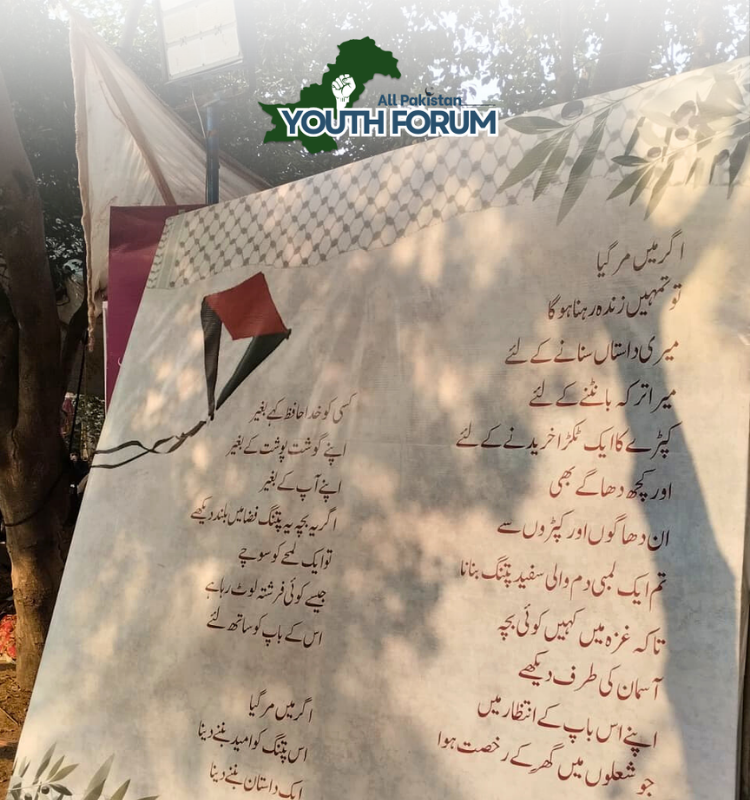 All Pakistan
YOUTH FORUM
اگر میں مر گیا
تو تمہیں زندہ رہنا ہو گا
میری داستاں سنانے کے لئے
میرا ترکہ بانٹنے کے لئے
کپڑے کا ایک ٹکڑا خریدنے کے لئے
اور کچھ دھاگے بھی
ان دھاگوں اور کپڑوں سے
تم ایک لمبی دم والی سفید پتنگ بنانا
تاکہ غزہ میں کہیں کوئی بچہ
آسمان کی طرف دیکھے
اپنے اس باپ کے انتظار میں
جو شعلوں میں گھر کے رخصت ہوا
کسی کو خدا حافظ کہے بغیر
اپنے گوشت پوشت کے بغیر
اپنے آپ کے بغیر
اگر یہ بچہ یہ پتنگ فضا میں بلند دیکھے
تو ایک لمحے کو سوچے
جیسے کوئی فرشتہ لوٹ رہا ہے
اس کے باپ کو ساتھ لئے
اگر میں مر گیا
اس پتنگ کو امید بننے دینا
ایک داستان بننے دینا